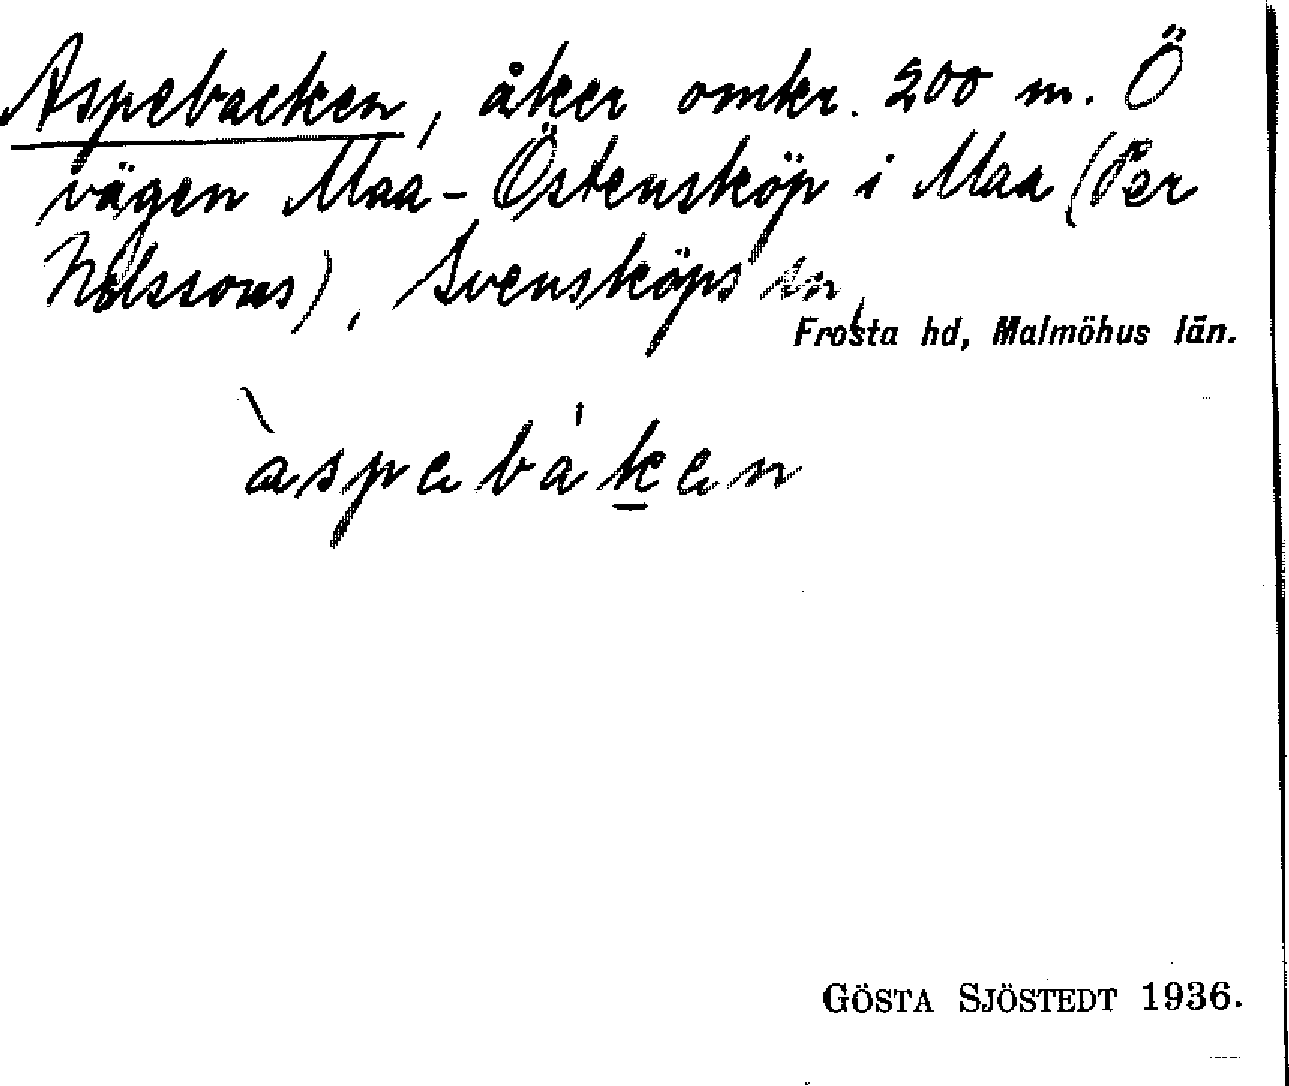 Aspebacken, åker omkr. 200 m. Ö
vägen Maa-Östensköp i Maa (Per
Nilssons), Svensköps sn,
Frosta hd, Malmöhus län.
àspebáken
GÖSTA SJÖSTEDT 1936.